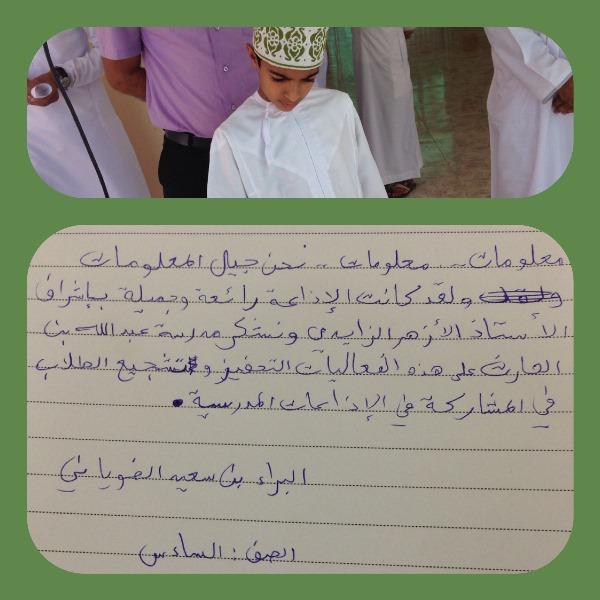 معلومات .. معلومات .. نحن جيل المعلومات
ولقد كانت الإذاعة رائعة وجميلة بإشراف
الأستاذ الأزهر الزايدي ونشكر مدرسة عبدالله بن
الحارث على هذه الفعاليات التحفيز وتشجيع الطلاب
في المشاركة في الإذاعات المدرسية.
البراء بن سعيد الضوياني
الصف : السادس